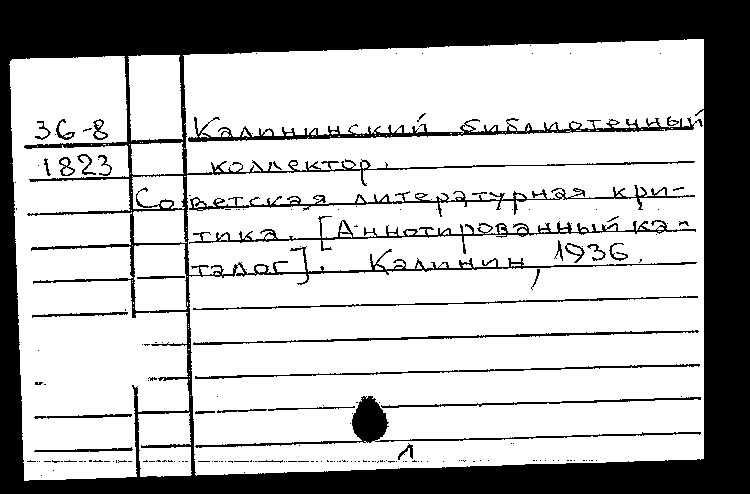 36-8 Калининский библиотечный
1823 коллектор.
Советская литературная кри-
тика. [Аннотированный ка-
талог]. Калинин, 1936.
1